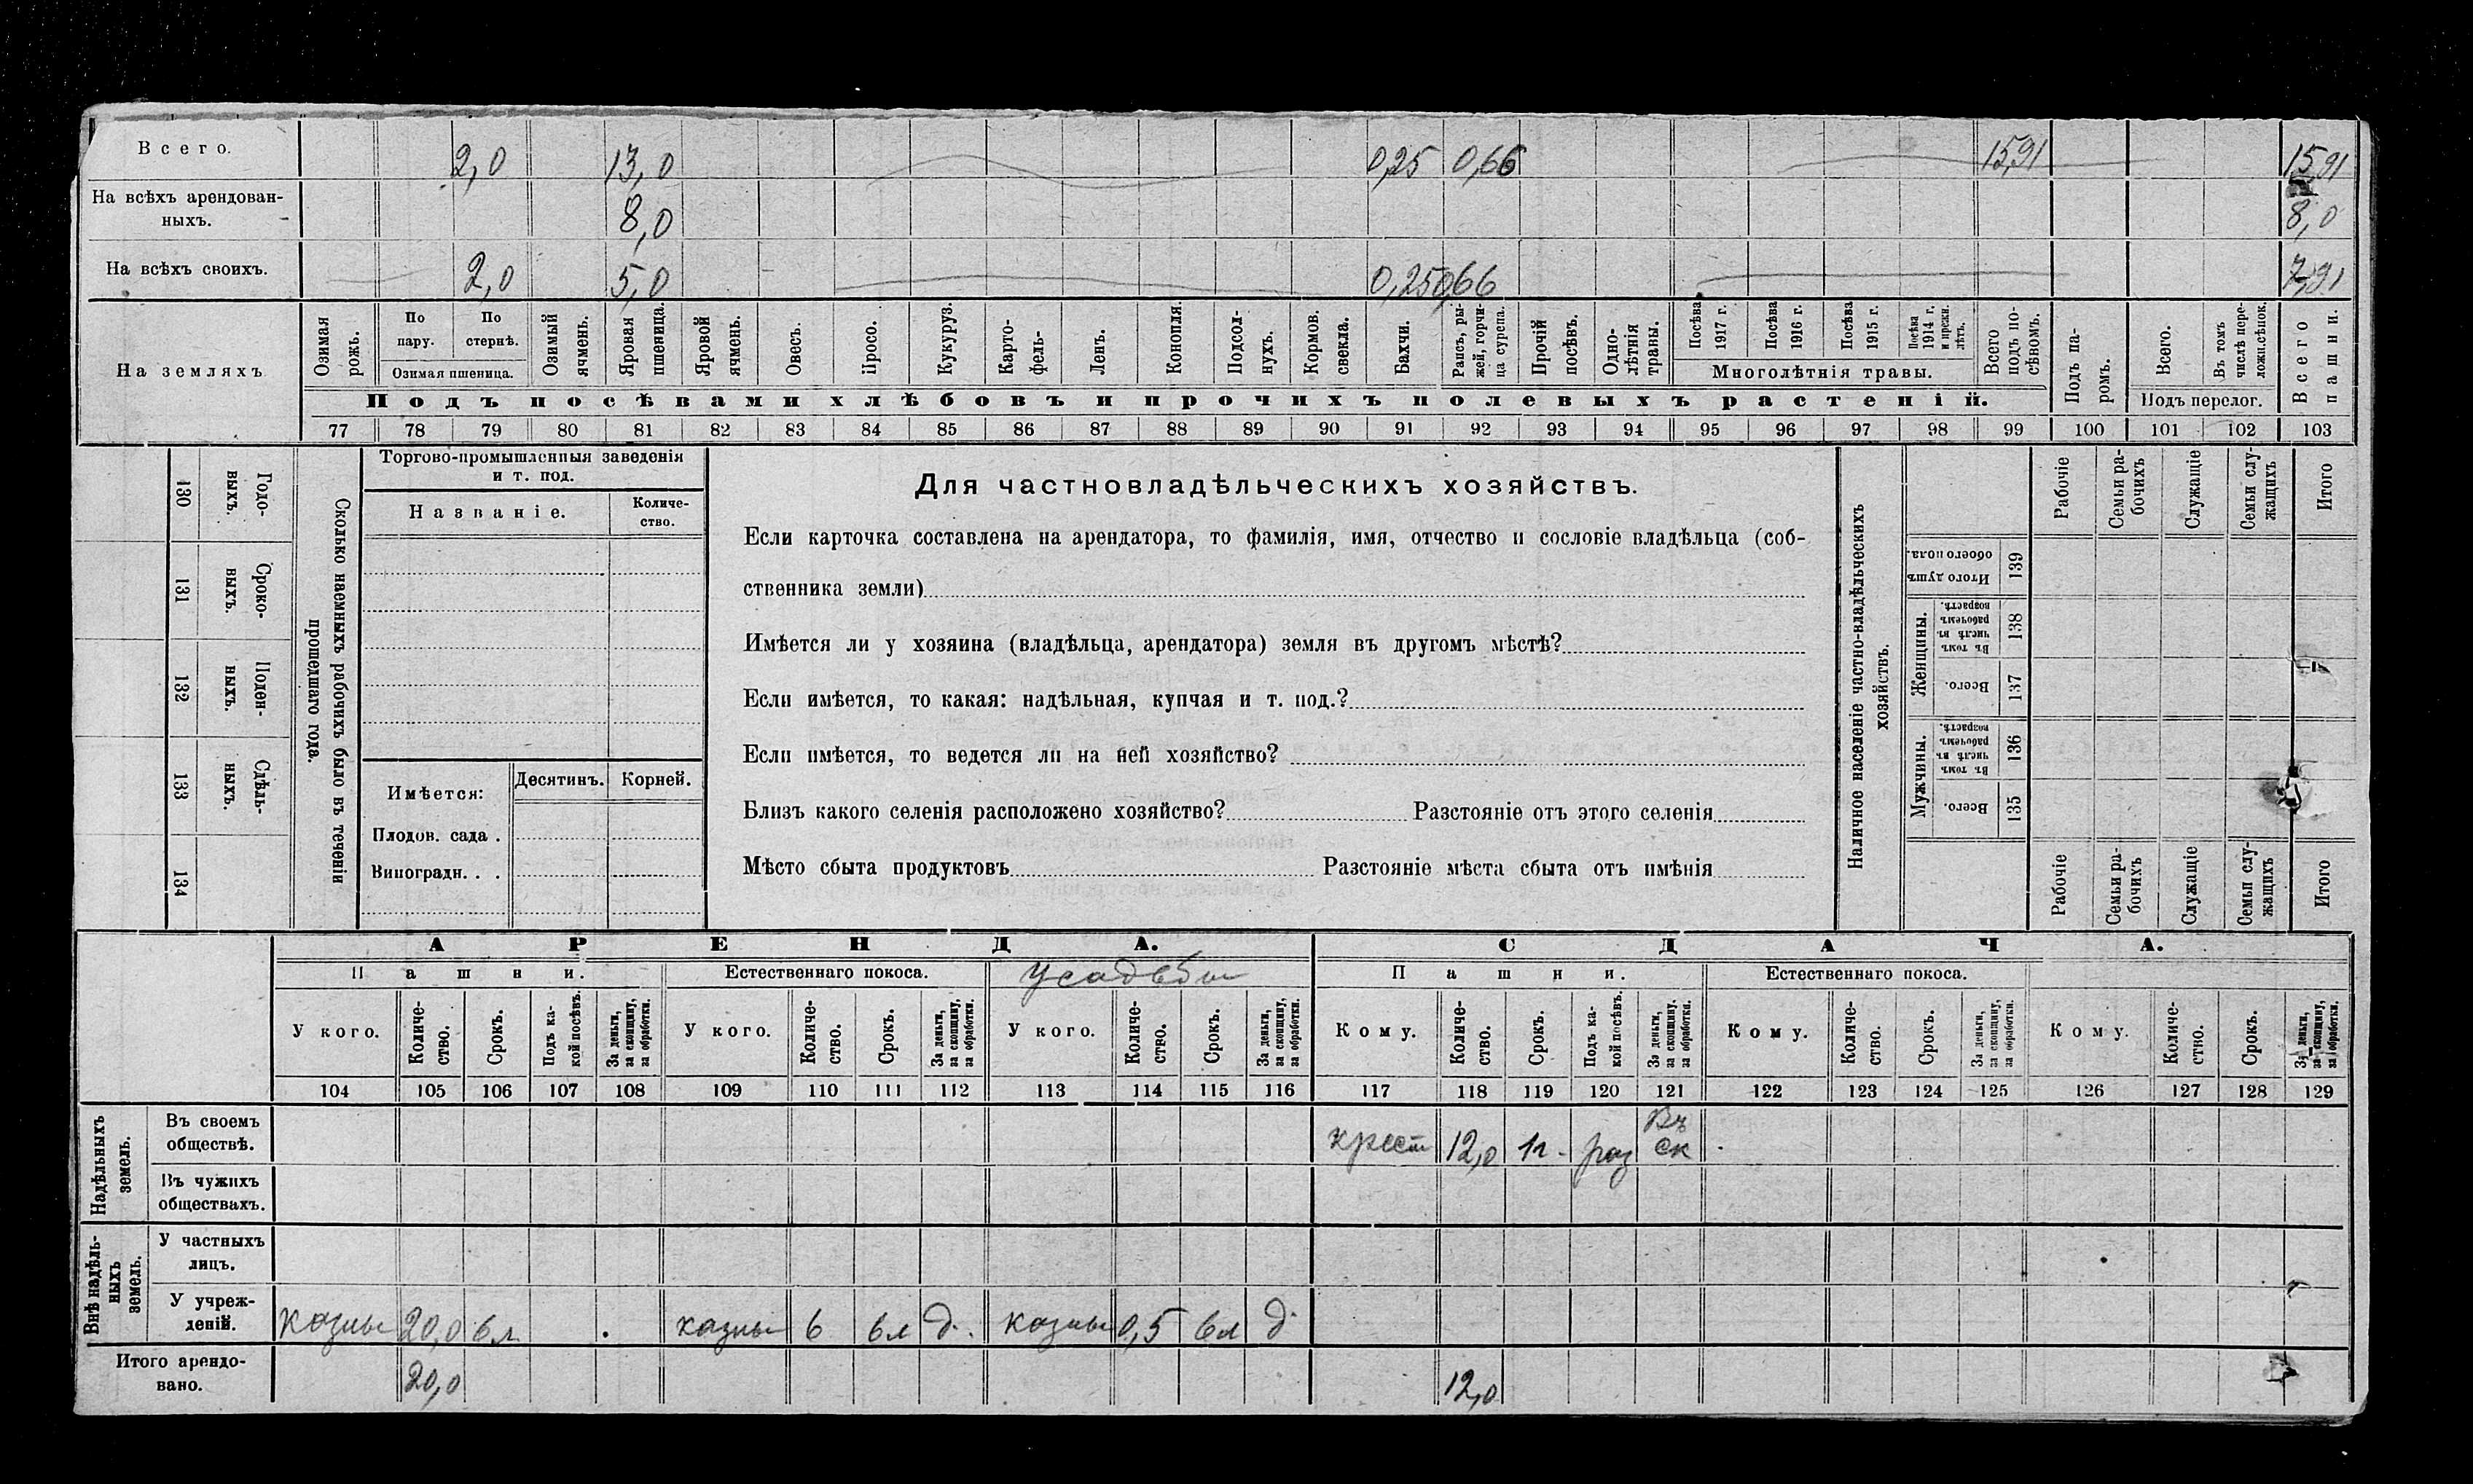 Всего. 2,0 13,0 0,25 0,66 15,91 15,91
На всѣхъ арендован-
ныхъ. 8,0 8,0
На всѣхъ своихъ. 2,0 5,0 0,25 0,66 7,91
На земляхъ
Озимая рожь.
По пару.
По стернѣ.
Озимая пшеница.
Озимый ячмень.
Яровая пшеница.
Яровой ячмень.
Овесъ.
Просо.
Кукуруз.
Карто-
фель-
Ленъ.
Конопля.
Подсол-
нухъ.
Кормов.
свекла.
Бахчи.
Рапсъ, ры-
жей, горчи-
ца сурепа.
Прочій
посѣвъ.
Одно-
лѣтнія
травы.
Посѣва
1917 г.
Посѣва
1916 г.
Посѣва
1915 г.
Посѣва
1914 г.
и прежн.
лѣтъ.
Многолѣтнія травы.
Всего
подъ по-
сѣвомъ.
Подъ па-
ромъ.
Всего.
Въ томъ
числѣ пере-
ложн.сѣнок.
Подъ перелог.
Всего
пашни.
Подъ посѣвами хлѣбовъ и прочихъ полевыхъ растеній.
77 78 79 80 81 82 83 84 85 86 87 88 89 90 91 92 93 94 95 96 97 98 99 100 101 102 103
130 Годо-
ныхъ.
131 Сроко-
выхъ.
132 Поден-
ныхъ.
133 Сдѣль-
ныхъ.
134
Сколько наемныхъ рабочихъ было въ теченіи
прошедшаго года.
Торгово-промышленныя заведенія
и т. под.
Названіе.
Количе-
ство.
Имѣется:
Десятинъ. Корней.
Плодов. сада .
Виноградн. . .
Для частновладѣльческихъ хозяйствъ.
Если карточка составлена на арендатора, то фамилія, имя, отчество и сословіе владѣльца (соб-
ственника земли)
Имѣется ли у хозяина (владѣльца, арендатора) земля въ другомъ мѣстѣ?
Если имѣется, то какая: надѣльная, купчая и т. под.?
Если имѣется, то ведется ли на ней хозяйство?
Близъ какого селенія расположено хозяйство? Разстояніе отъ этого селенія
Мѣсто сбыта продуктовъ Разстояніе мѣста сбыта отъ имѣнія
Наличное населеніе частно-владѣльческихъ
хозяйствъ.
Рабочіе
Семьи ра-
бочихъ
Служащіе
Семьи слу-
жащихъ
Итого
Итого душъ
обоего пола.
139
Женщины.
Въ томъ
числѣ въ
рабочемъ
возрастѣ.
138
Всего.
137
Мужчины.
Въ томъ
числѣ въ
рабочемъ
возрастѣ.
136
Всего.
135
Рабочіе
Семьи ра-
бочихъ
Служащіе
Семьи слу-
жащихъ
Итого
АРЕНДА. СДАЧА.
Пашни. Естественнаго покоса. усадьбы Пашни. Естественнаго покоса.
У кого.
Количе-
ство.
Срокъ.
Подъ ка-
кой посѣвъ.
За деньги,
за скопщину,
за обработки.
У кого.
Количе-
ство.
Срокъ.
За деньги,
за скопщину,
за обработки.
У кого.
Количе-
ство.
Срокъ.
За деньги,
за скопщину,
за обработки.
Кому.
Количе-
ство.
Срокъ.
Подъ ка-
кой посѣвъ.
За деньги,
за скопщину.
за обработки.
Кому.
Количе-
ство.
Срокъ.
За деньги,
за скопщину,
за обработки.
Кому.
Количе-
ство.
Срокъ.
За деньги,
за скопщину,
за обработки.
104 105 106 107 108 109 110 111 112 113 114 115 116 117 118 119 120 121 122 123 124 125 126 127 128 129
Надѣльныхъ
земель.
Въ своемъ
обществѣ. крест 12,0 1г. раз Въ ск
Въ чужихъ
обществахъ.
Внѣ надѣль-
ныхъ
земель.
У частныхъ
лицъ.
У учреж-
деній. казны 20,0 6л казны 6 6л д. казны 0,5 6л д.
Итого арендо-
вано. 20,0 12,0